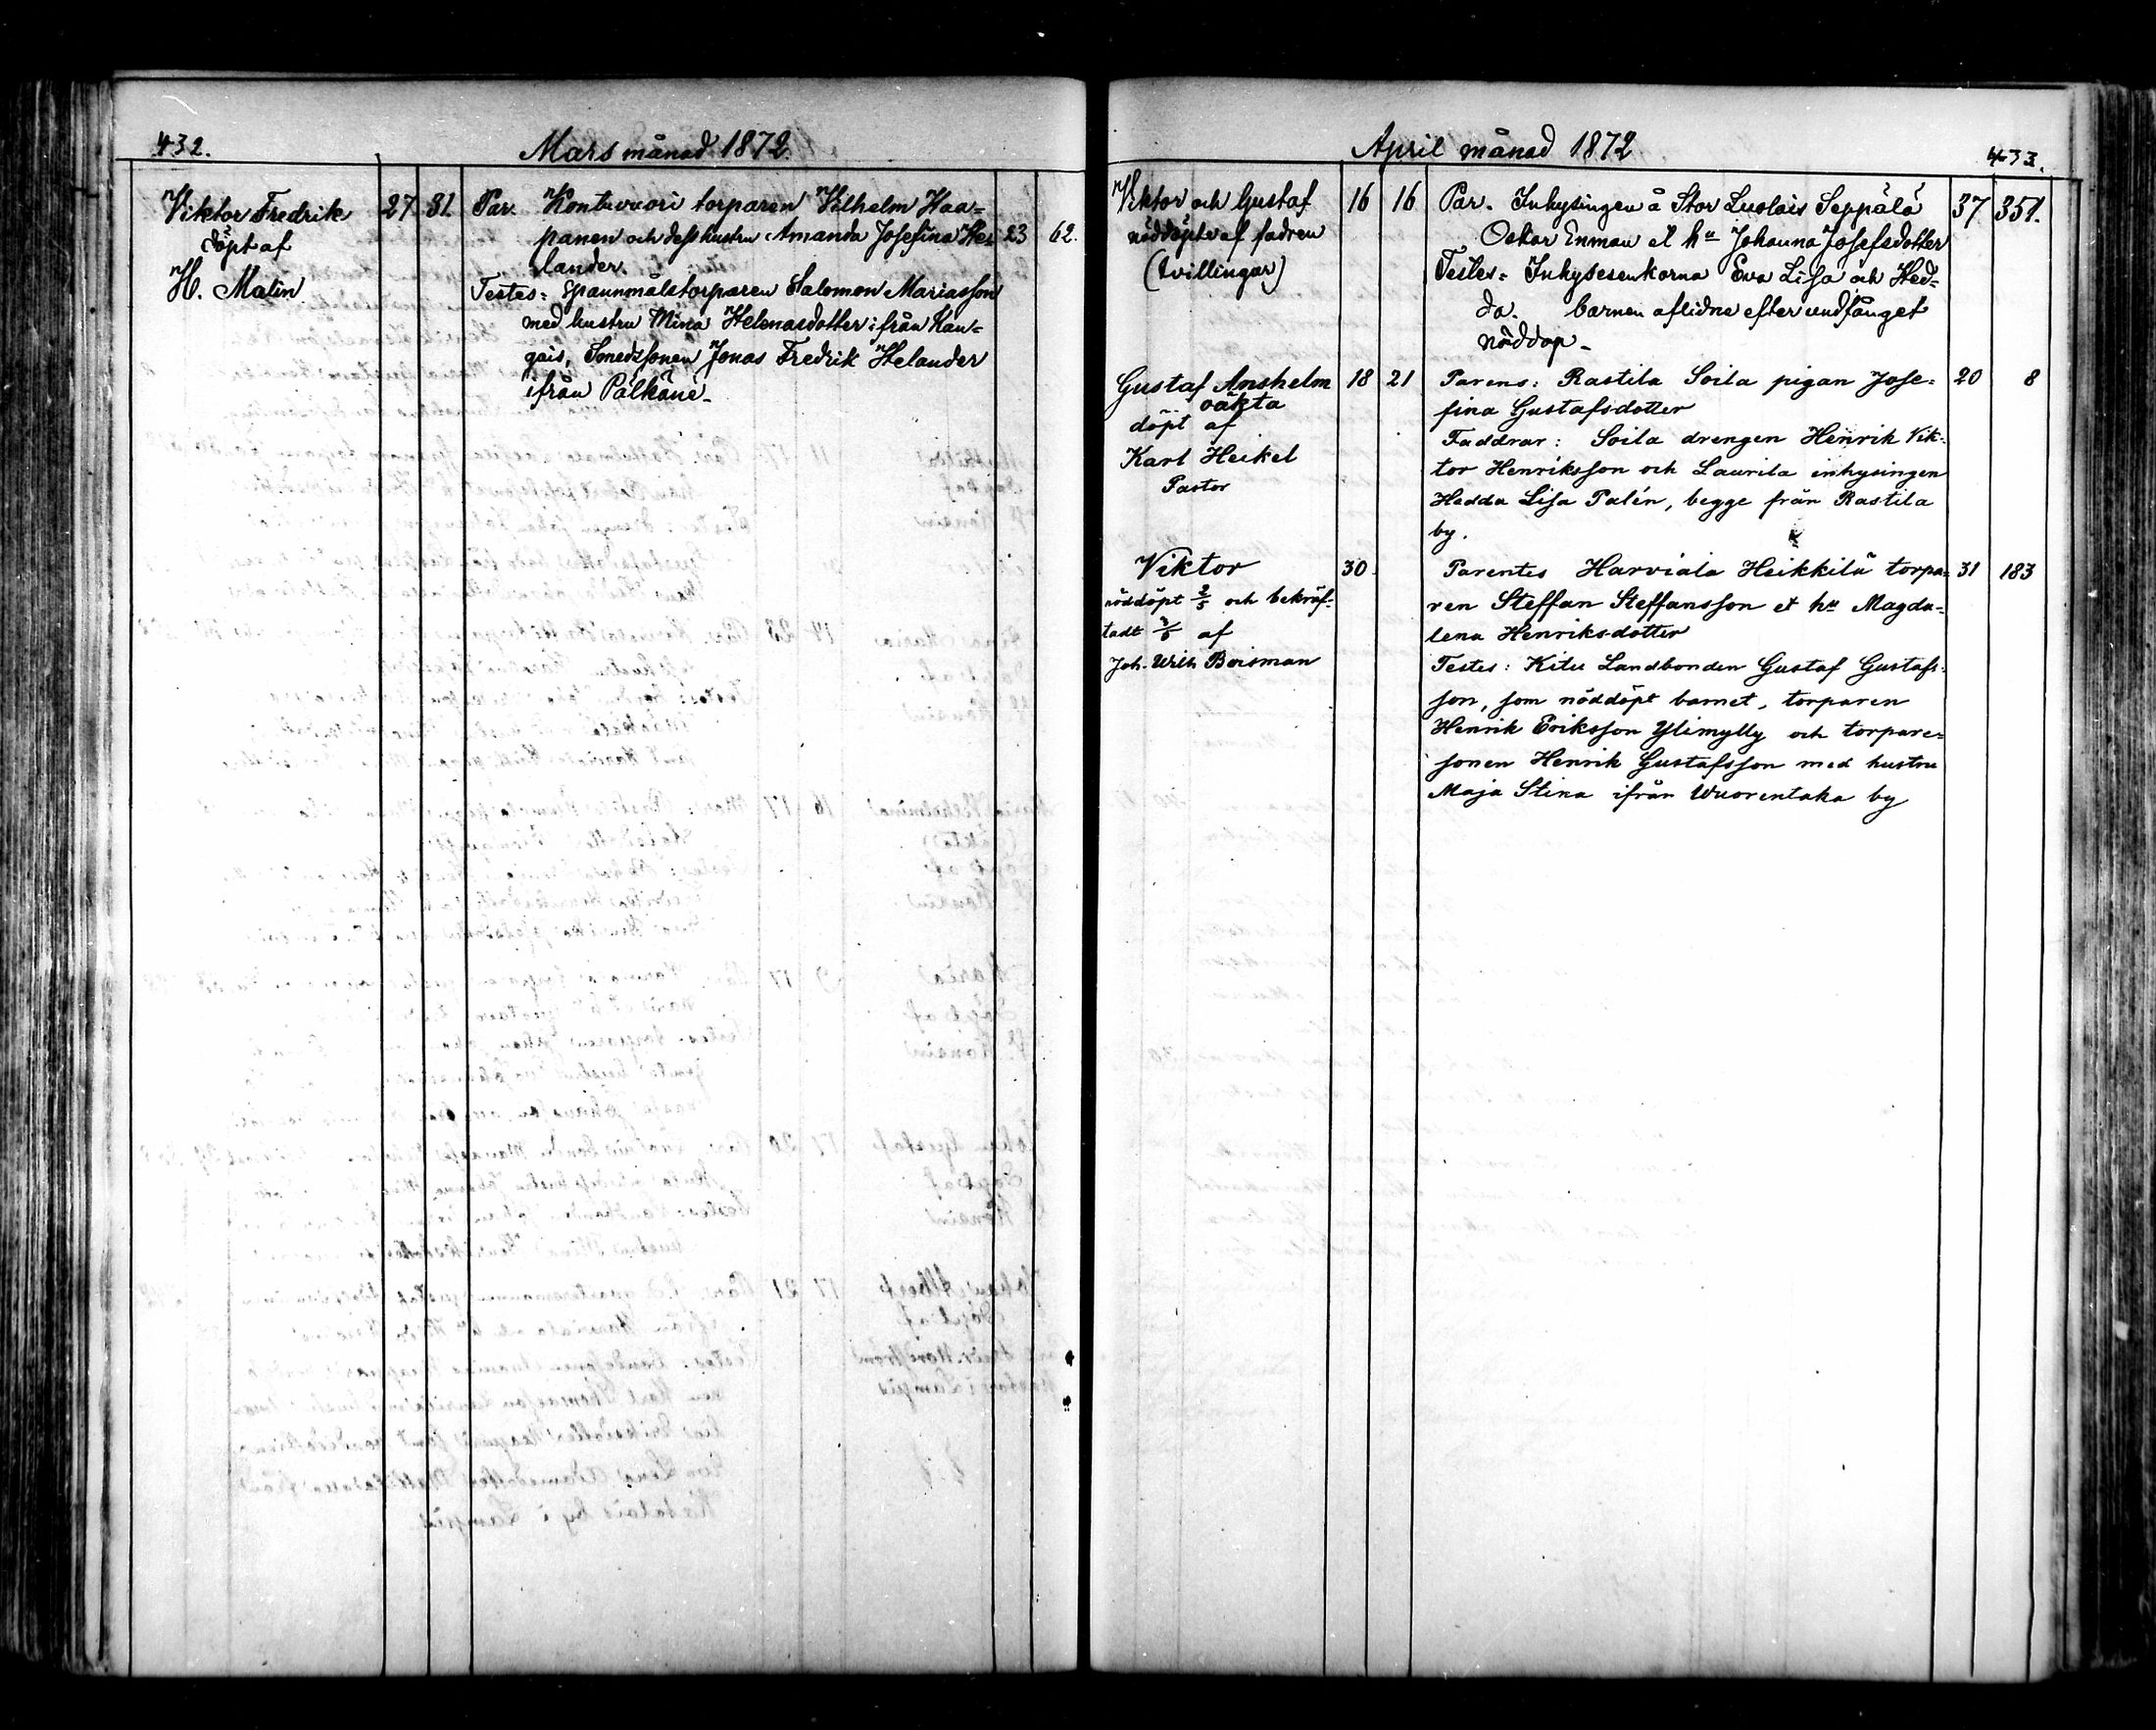 432.
Mars månad 1872.
Viktor Fredrik
döpt af
H. Malin
27 31.
Par. Kontuvuori torparen Vilhelm Haa-
panen och dess hustru Amanda Josefina He-
lander.
23 62.
Testes: Spannmålstorparen Salomon Mariasson
med hustru Mina Helenasdotter ifrån Kan-
gais, Smedssonen Jonas Fredrik Helander
ifrån Pälkäne.
April månad 1872
433.
Viktor och Gustaf
nöddöpte af fadren
(tvillingar)
16 16
Par. Inhysingen å Stor Luolais Seppälä
Oskar Enman et hu Johanna Josefsdotter
Testes: Inhysesenkorna Eva Lisa och Hed-
da. barnen aflidne efter undfånget
nöddop.
37 351.
Gustaf Anshelm
oäkta
döpt af
Karl Heikel
Pastor
18 21
Parens: Rastila Soila pigan Jose-
fina Gustafsdotter
Faddrar: Soila drengen Henrik Vik-
tor Henriksson och Laurila inhysingen
Hedda Lisa Palén, begge från Rastila
by.
20 8
Viktor
nöddöpt 2/5 och bekräf-
tadt 3/5 af
Joh. Wilh Boisman
30
Parentes Harviala Heikkilä torpa-
ren Steffan Steffansson et hu Magda-
lena Henriksdotter
Testes: Kitu Landbonden Gustaf Gustafs-
son, som nöddöpt barnet, torparen
Henrik Eriksson Ylimylly och torpare-
sonen Henrik Gustafsson med hustru
Maja Stina ifrån Wuorentaka by
31 183